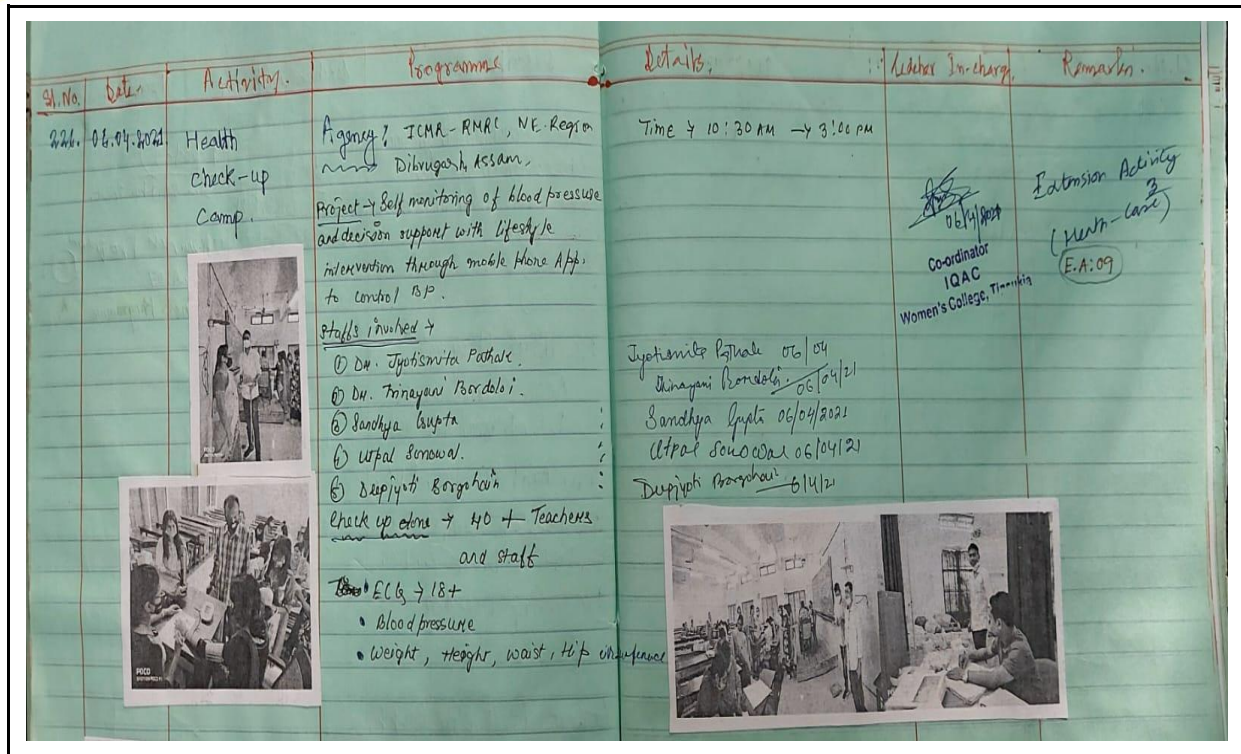 Sl. No. Date Activity. Programme Details. Teacher In-charge. Remarks.
226. 06.04.2021. Health
check-up
Camp.
Agency: ICMR-RMRC, NE-Region
Dibrugarh, Assam,
Project → Self monitoring of blood pressure
and decision support with lifestyle
intervention through mobile phone App.
to control BP.
Staffs involved →
① DR. Jyotismita Pathak.
② DR. Trinayani Bordoloi.
③ Sandhya Gupta
④ Utpal Sonowal.
⑤ Deepjyoti Borgohain
Check up done → 40 + Teachers
and staff
• ECG → 18+
• Blood pressure
• Weight, Height, waist, Hip circumference
Time → 10:30 AM → 3:00 PM
Jyotismita Pathak 06/04
Trinayani Bordoloi 06/04/21
Sandhya Gupta 06/04/2021
Utpal Sonowal 06/04/21
Deepjyoti Borgohain 6/4/21
06/4/2021
Co-ordinator
IQAC
Women's College, Tinsukia
Extension Activity
3
(Health-Care)
E.A:09
POCO